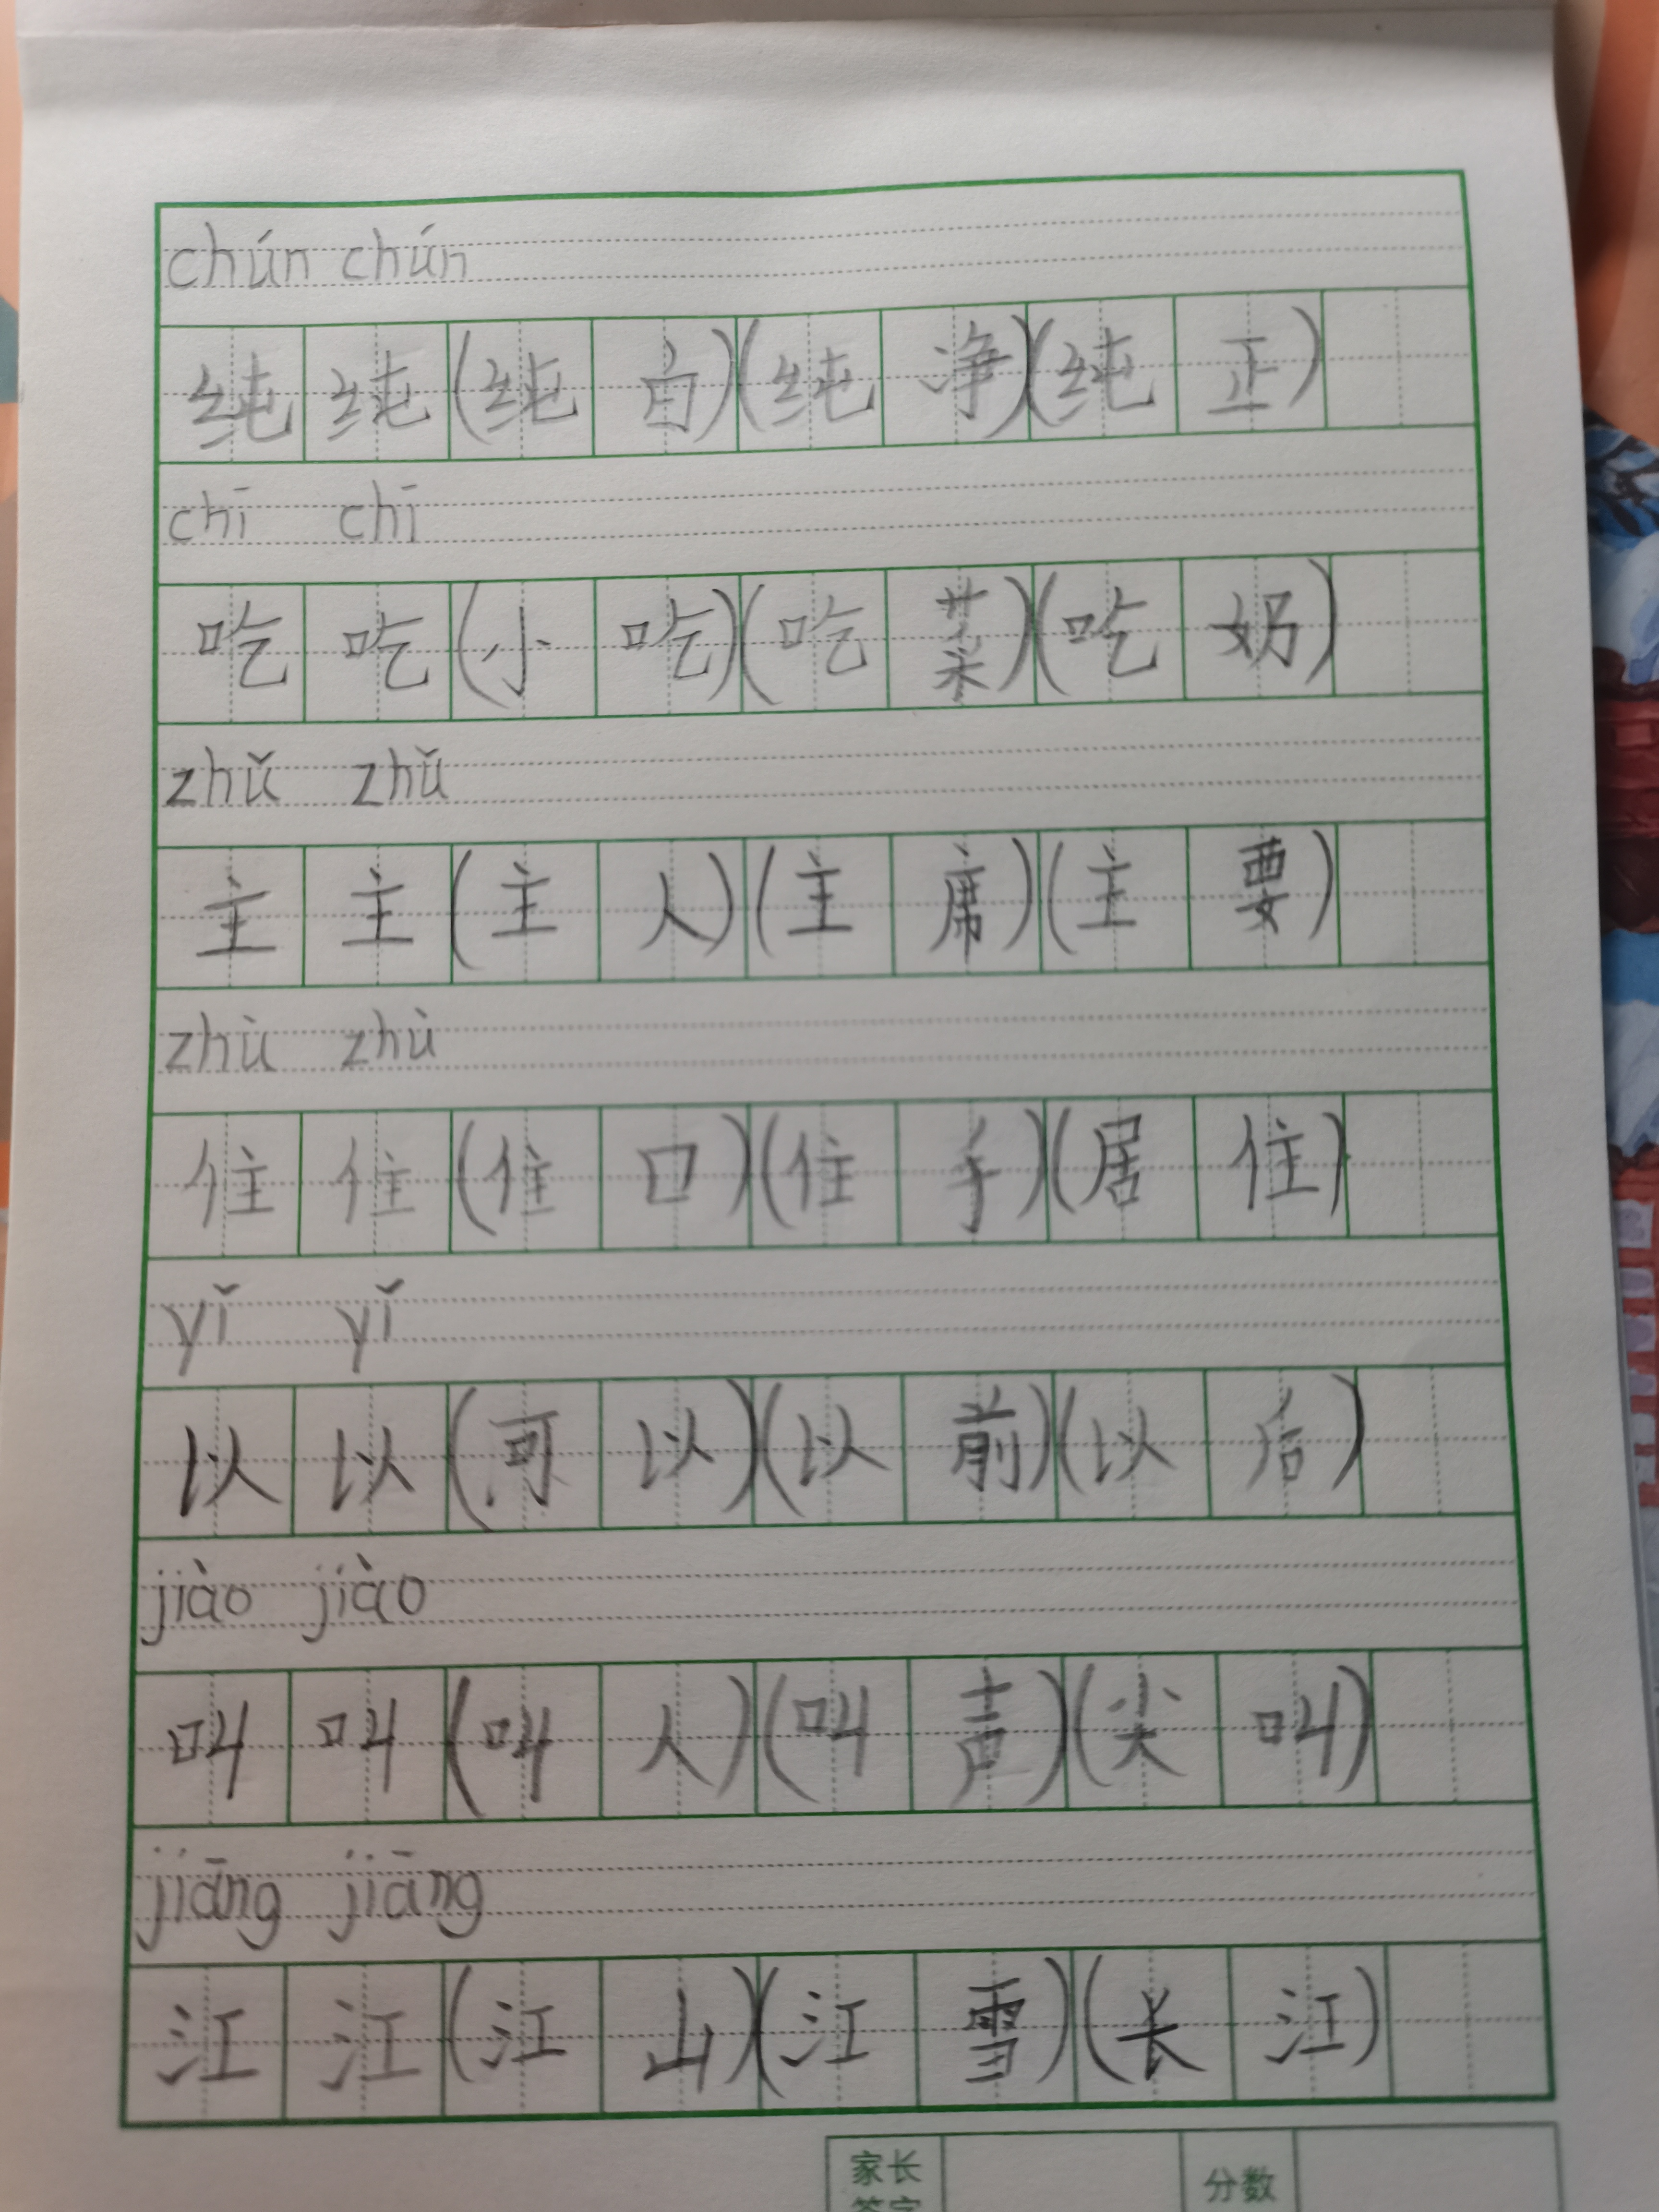 chún chún
纯纯(纯白)(纯净)(纯正)
chī chī
吃吃(小吃)(吃菜)(吃奶)
zhǔ zhǔ
主主(主人)(主席)(主要)
zhù zhù
住住(住口)(住手)(居住)
yǐ yǐ
以以(可以)(以前)(以后)
jiào jiào
叫叫(叫人)(叫声)(尖叫)
jiāng jiāng
江江(江山)(江雪)(长江)
家长 分数
签字